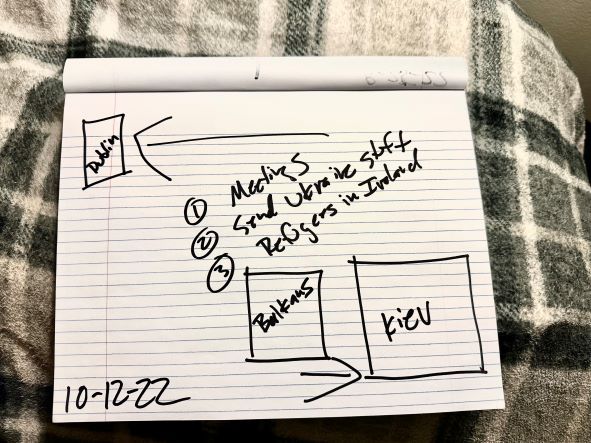 Dublin
① Meetings
② Send Ukraine stuff
③ Refugees in Ireland
Balkans
Kiev
10-12-22